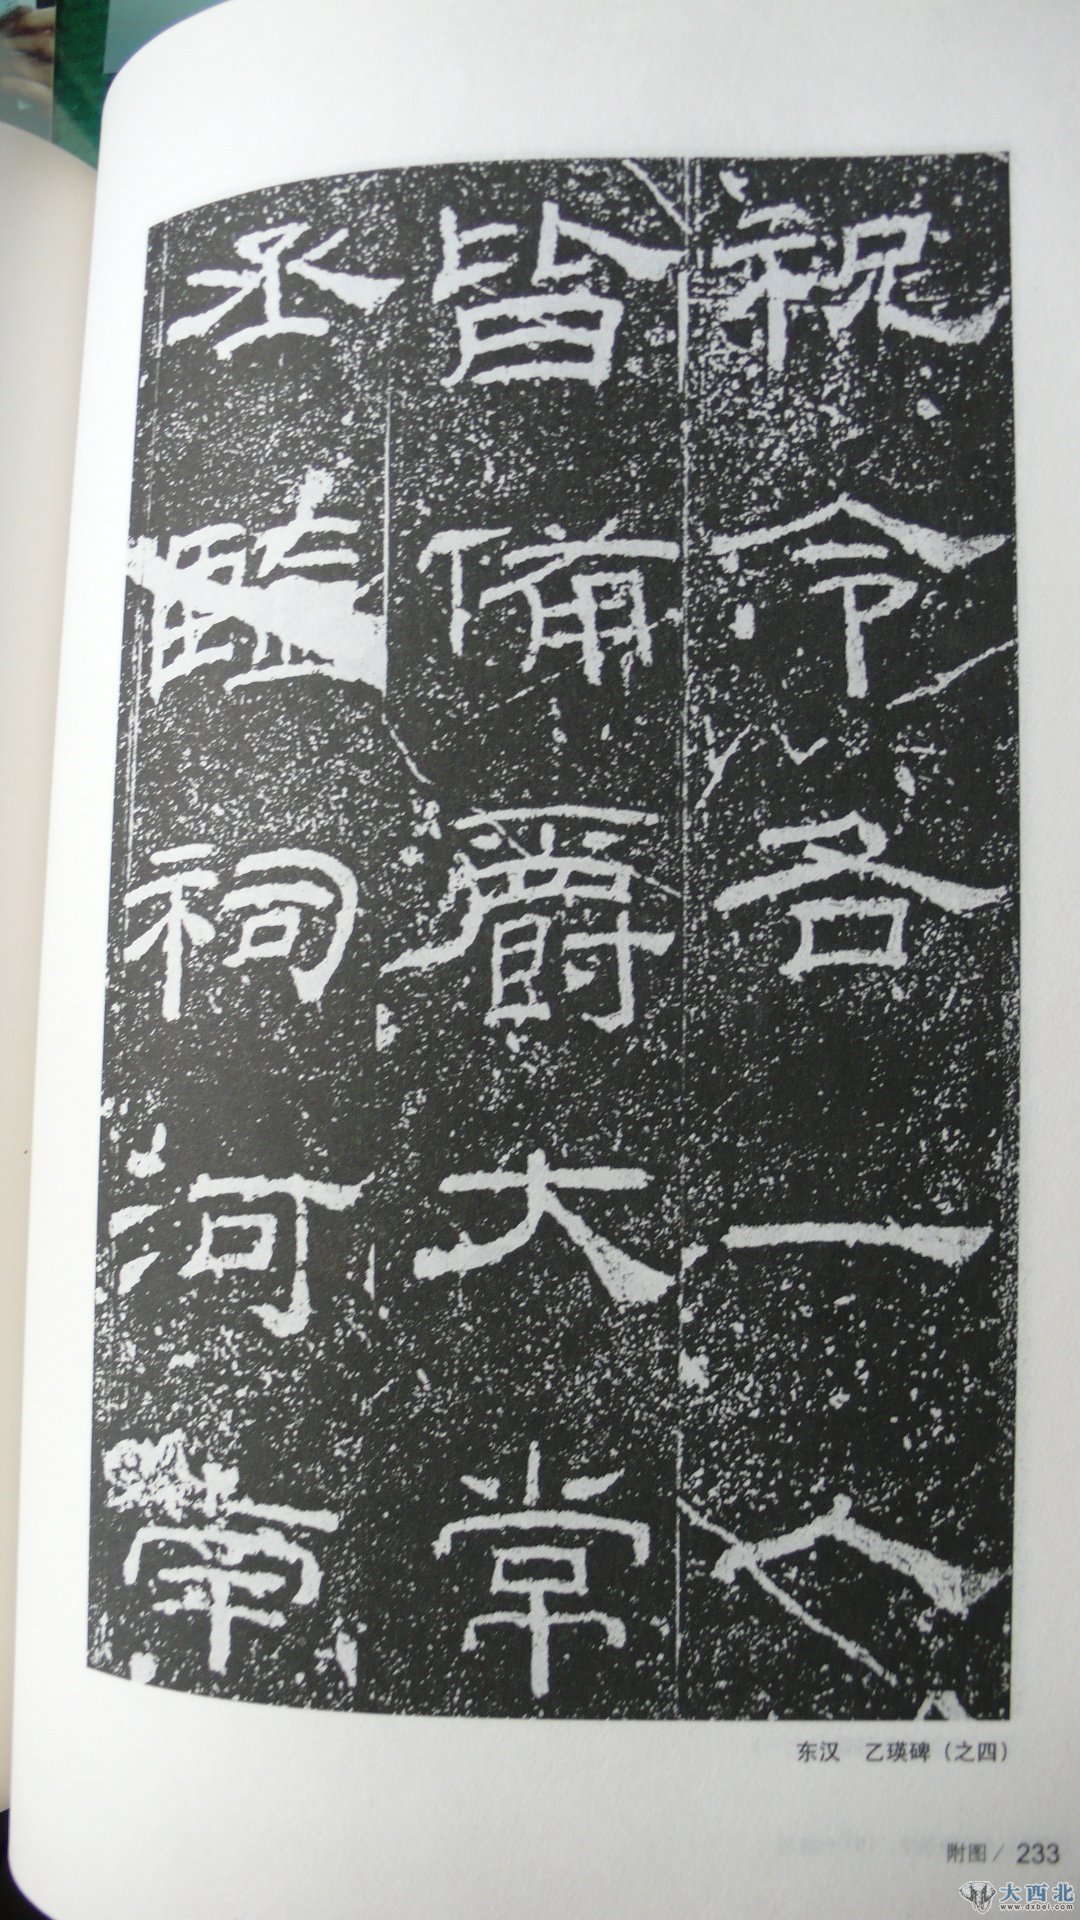 祝令各一人
皆備爵大常
丞監祠河南
东汉　乙瑛碑（之四）
附图／233
大西北
www.dxbei.com